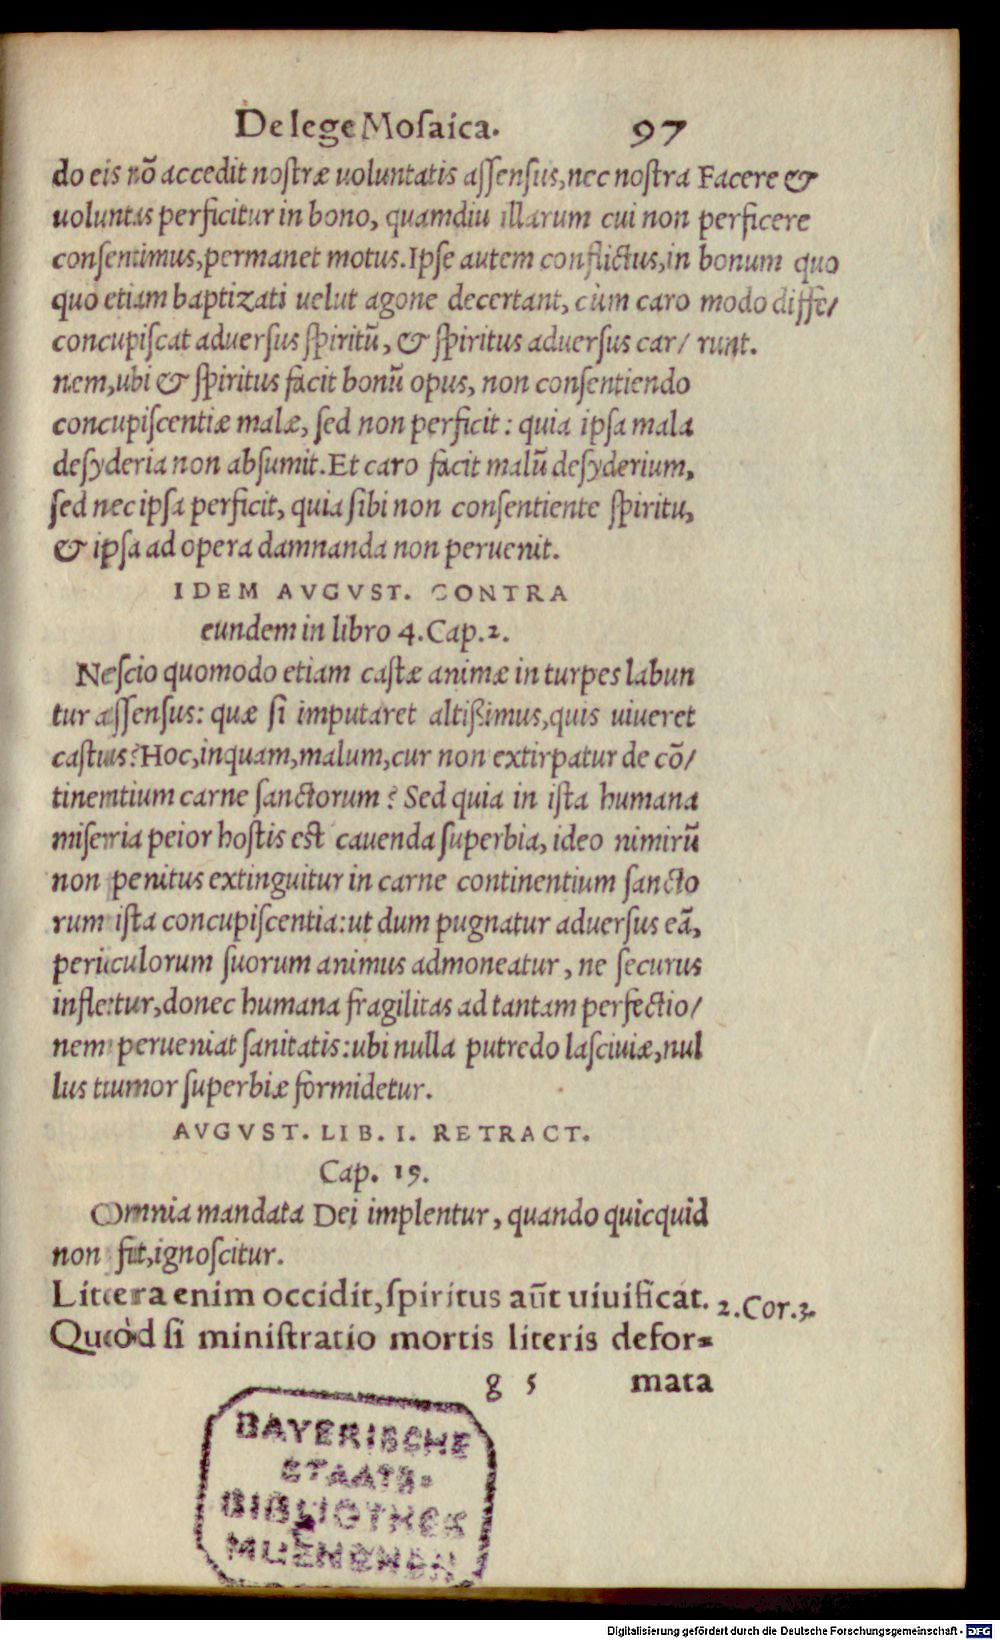 De lege Mosaica. 97
do eis nõ accedit nostræ uoluntatis assensus, nec nostra
uoluntas perficitur in bono, quamdiu illarum cui non
consentimus, permanet motus. Ipse autem conflictus, in
quo etiam baptizati uelut agone decertant, cùm caro
concupiscat aduersus spiritũ, & spiritus aduersus car/
nem, ubi & spiritus facit bonũ opus, non consentiendo
concupiscentiæ malæ, sed non perficit: quia ipsa mala
desyderia non absumit. Et caro facit malũ desyderium,
sed nec ipsa perficit, quia sibi non consentiente spiritu,
& ipsa ad opera damnanda non peruenit.
Facere &
perficere
bonum quo
modo diffe/
runt.
IDEM AVGVST. CONTRA
eundem in libro 4. Cap. 2.
Nescio quomodo etiam castæ animæ in turpes labun
tur assensus: quæ si imputaret altißimus, quis uiueret
castus? Hoc, inquam, malum, cur non extirpatur de cõ/
tinentium carne sanctorum? Sed quia in ista humana
miseria peior hostis est cauenda superbia, ideo nimirũ
non penitus extinguitur in carne continentium sancto
rum ista concupiscentia: ut dum pugnatur aduersus eã,
periculorum suorum animus admoneatur, ne securus
infletur, donec humana fragilitas ad tantam perfectio/
nem perueniat sanitatis: ubi nulla putredo lasciuiæ, nul
lus tumor superbiæ formidetur.
AVGVST. LIB. I. RETRACT.
Cap. 19.
Omnia mandata Dei implentur, quando quicquid
non fit, ignoscitur.
Littera enim occidit, spiritus aũt uiuificat.
2. Cor. 3.
Quòd si ministratio mortis literis defor-
g 5 mata
BAYERISCHE
STAATS-
BIBLIOTHEK
MUENCHEN
Digitalisierung gefördert durch die Deutsche Forschungsgemeinschaft - DFG